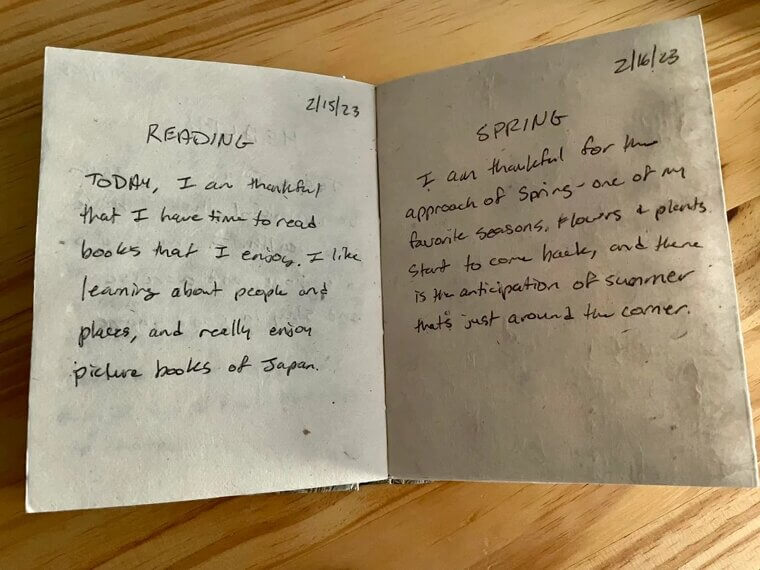 2/15/23
READING
TODAY, I am thankful
that I have time to read
books that I enjoy. I like
learning about people and
places, and really enjoy
picture books of Japan.
2/16/23
SPRING
I am thankful for the
approach of Spring - one of my
favorite seasons. Flowers & plants
start to come back, and there
is the anticipation of summer
that's just around the corner.